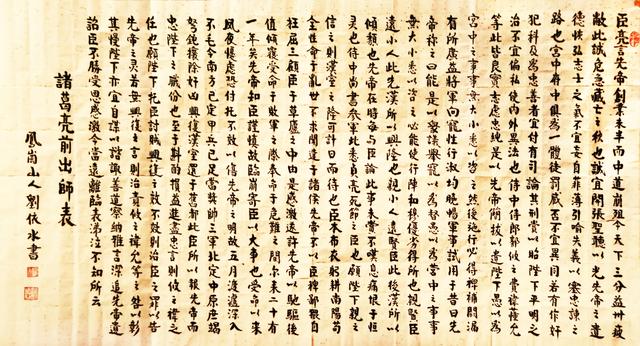 臣亮言先帝創業未半而中道崩殂今天下三分益州疲
敝此誠危急之秋也誠宜開張聖聽以光先帝之遺
德恢弘志士之氣不宜妄自菲薄引喻失義以塞忠諫之
路也宮中府中俱為一體陟罰臧否不宜異同若有作奸
犯科及為忠善者宜付有司論其刑賞以昭陛下平明之
治不宜偏私使內外異法也侍中侍郎郭攸之費禕董允
等此皆良實志慮忠純是以先帝簡拔以遺陛下愚以為
宮中之事事無大小悉以咨之然後施行必得裨補闕漏
有所廣益將軍向寵性行淑均曉暢軍事試用于昔日先
帝稱之曰能是以眾議舉寵以為督愚以為營中之事事
無大小悉以咨之必能使行陣和穆優劣得所也親賢臣
遠小人此先漢所以興隆也親小人遠賢臣此後漢所以
傾頹也先帝在時每與臣論此事未嘗不嘆息痛恨于桓
靈也侍中尚書參軍此悉貞亮死節之臣也願陛下親之
信之則漢室之隆可計日而待也臣本布衣躬耕南陽苟
全性命于亂世不求聞達于諸侯先帝不以臣卑鄙猥自
枉屈三顧臣于草廬之中由是感激遂許先帝以馳驅後
值傾覆受命于敗軍之際奉命于危難之間爾來二十有
一年矣先帝知臣謹慎故臨崩寄臣以大事也受命以來
夙夜憂慮恐付托不效以傷先帝之明故五月渡瀘深入
不毛今南方已定甲兵已足當獎帥三軍北定中原庶竭
駑鈍攘除奸凶興復漢室還于舊都此臣所以報先帝而
忠陛下之職份也至于斟酌損益進盡忠言則攸之禕之
任也願陛下托臣討賊興復之效不效則治臣之罪以告
先帝之靈若無興復之言則責攸之禕允等之咎以彰
其慢陛下亦宜自謀以諮諏善道察納雅言深追先帝遺
詔臣不勝受恩感激今當遠離臨表涕泣不知所云
諸葛亮前出師表
鳳崗山人劉依水書